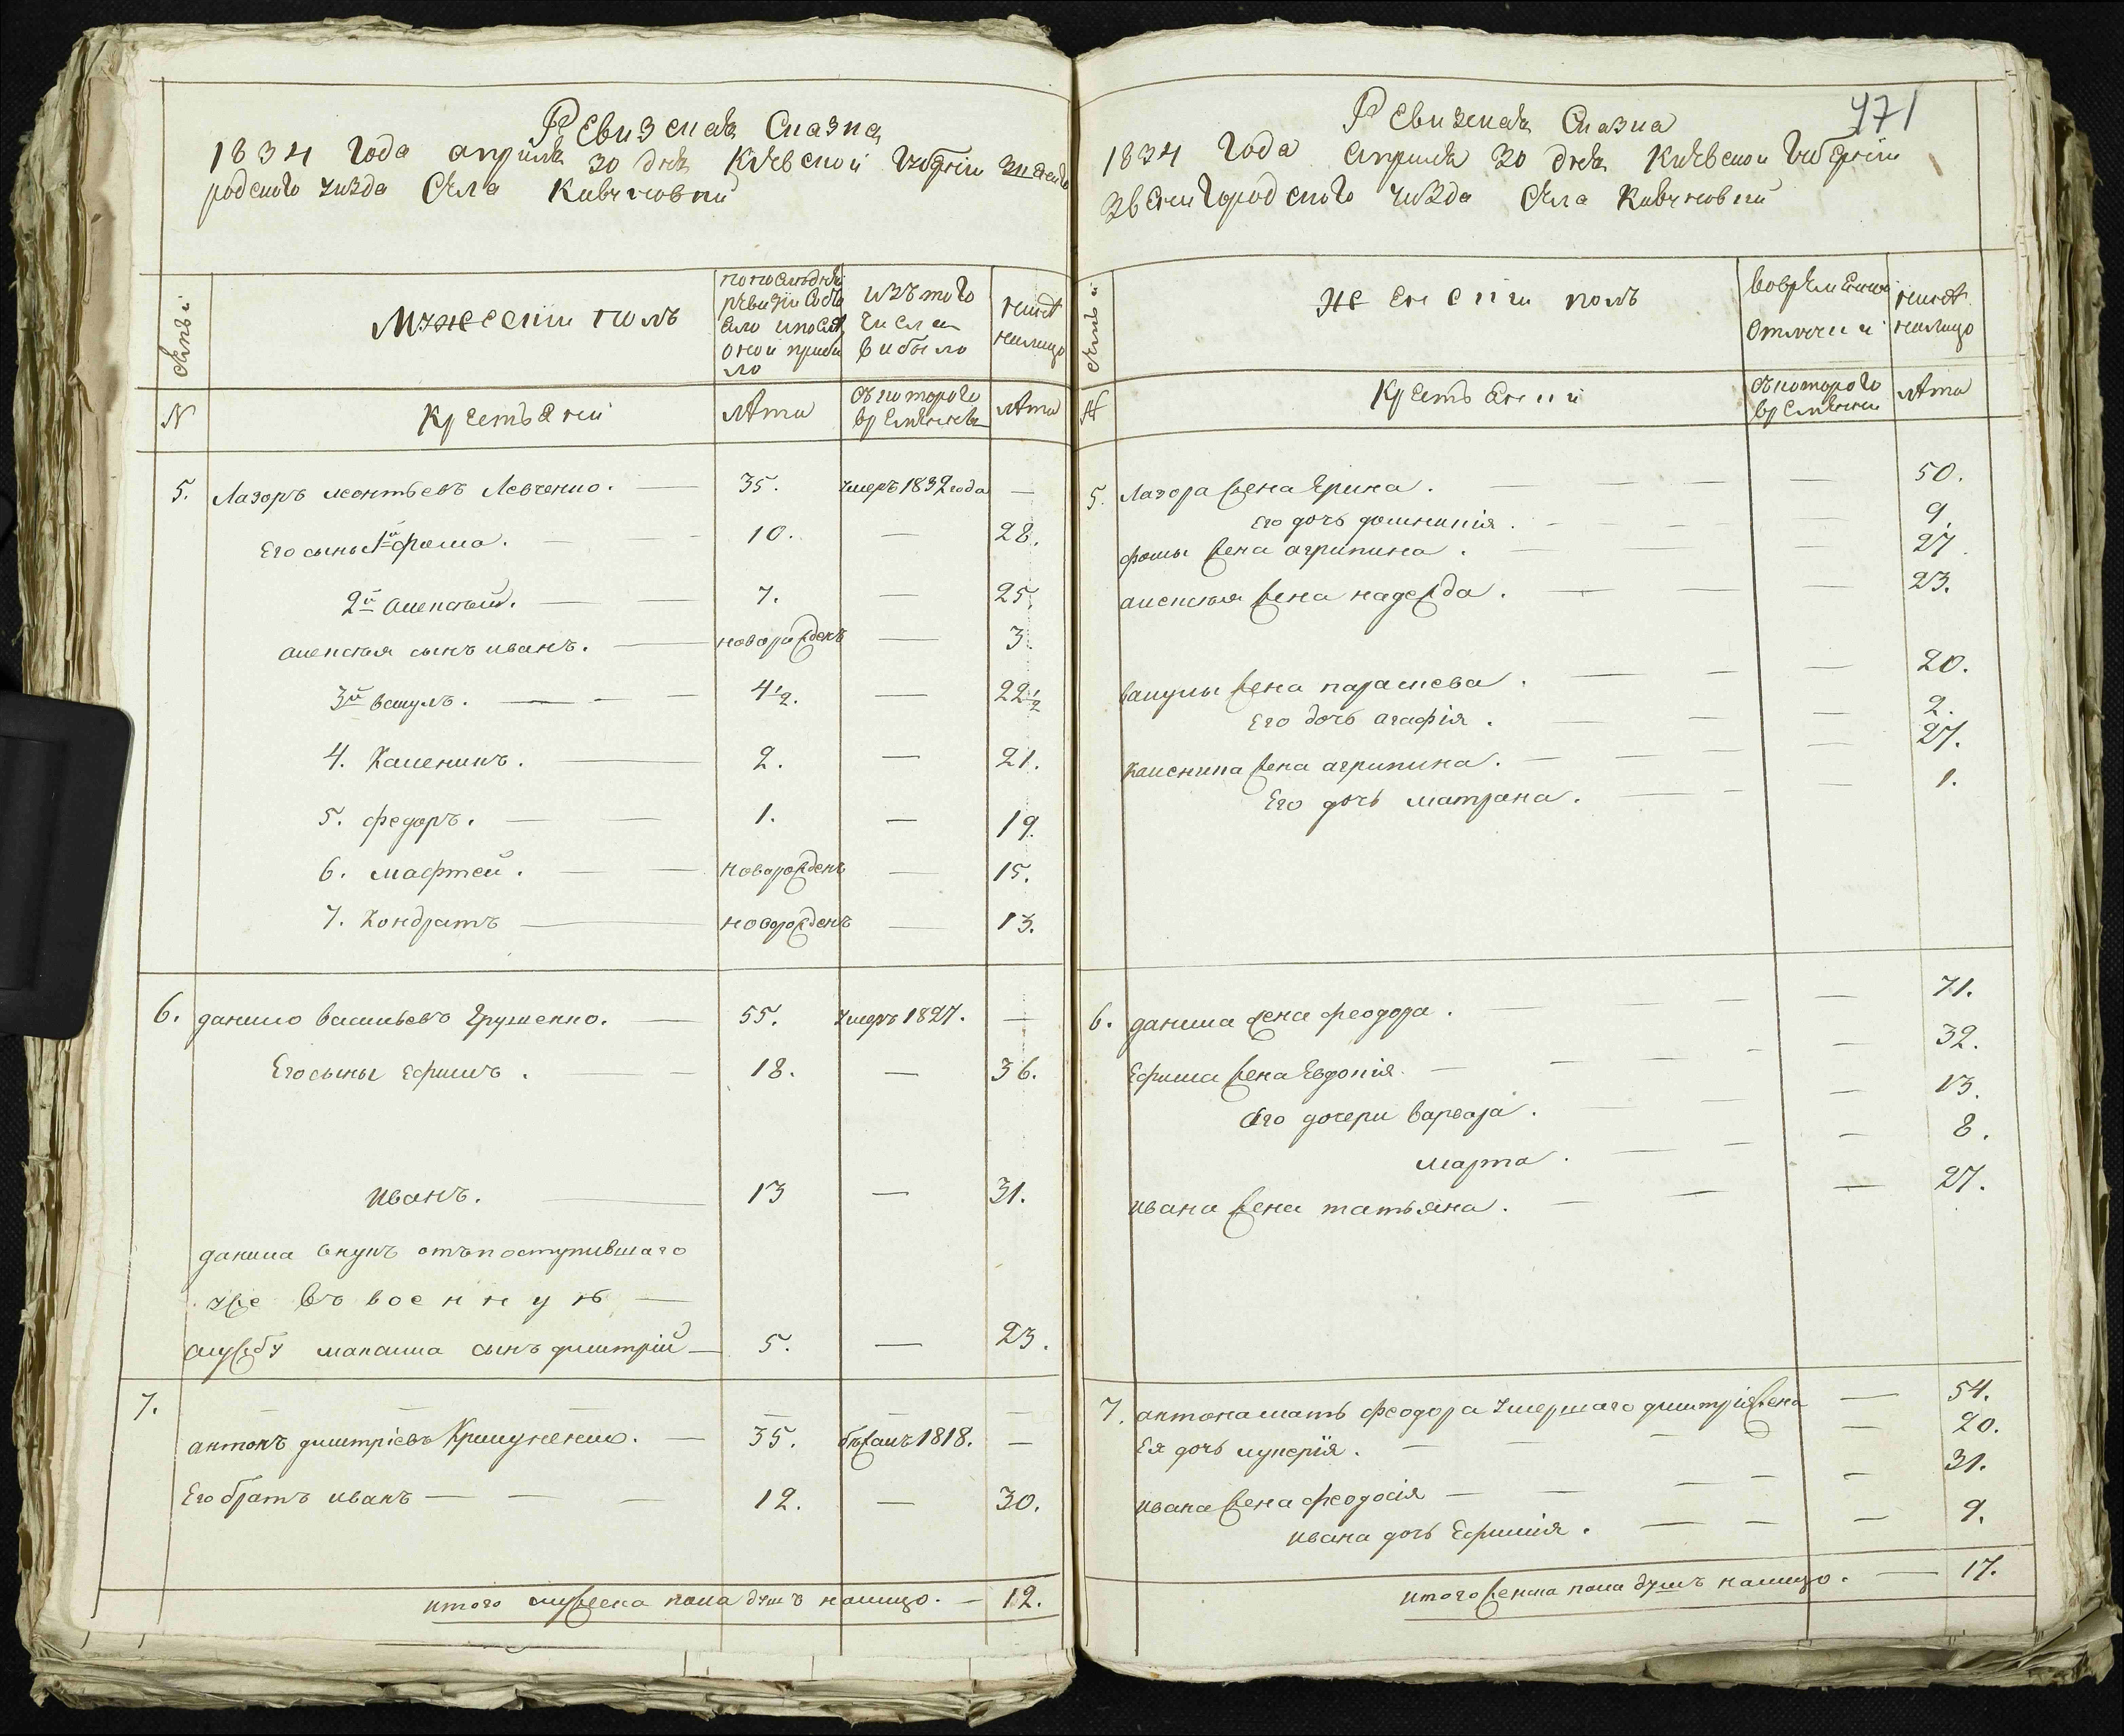 Ревизская Сказка
1834 года априля 30 дня Киевской губернии Звениго
родского уизда Села Кивчновки
Семьи
Мужескии полъ
попоследней
ревизии состо
яло и после
оной прибы
ло
изъ того
числа
выбыло
ниње
налицо
N
Крестьяни
лѣта
съ которого
временны
лѣта
5. Лазоръ леонтьевъ Левченко. — 35. умеръ 1832 года —
Его сыны 1й фома. — 10. — 28.
2й алексѣй. — 7. — 25.
алексѣя сынъ иванъ. — новорожденъ — 3.
3й вакулъ. — 4½. — 22½
4. Каленикъ. — 2. — 21.
5. федоръ. — 1. — 19.
6. мафтей. — новорожденъ — 15.
7. Кондратъ — новорожденъ — 13.
6. данило васильевъ Грушенко. — 55. умеръ 1827. —
Его сыны Ефимъ. — 18. — 36.
Иванъ. — 13 — 31.
данила внукъ отъ поступившаго
уже въ военную —
службу макама сынъ димитрій — 5. — 23.
7. антонъ димитріевъ — 35. бѣжалъ 1818. —
Его братъ иванъ — 12. — 30.
итого мужеска пола душъ налицо. — 12.
471
Ревизская Сказка
1834 года Априля 30 дня Киевской губернии
Звенигородского уизда Села Кивчновки
Семьи
Женскии полъ
вовременной
отлучки
ниње
налицо
N
Крестьянки
съ которого
времени
лѣта
5. Лазора жена Ярина. — 50.
Его дочь домникия. — 9.
фомы жена агрипина. — 27.
алексѣя жена надежда. — 23.
вакулы жена параскева. — 20.
Его дочь агафія. — 2.
Каленика жена агрипина. — 27.
Его дочь матрона. — 1.
6. данила жена феодора. — 71.
Ефима жена Евдокія. — 32.
Его дочери варвара. — 13.
марта. — 8.
ивана жена татьяна. — 27.
7. антона мать феодора умершаго димитрія жена — 54.
Ея дочь лукерія. — 20.
ивана жена феодосія — 31.
ивана дочь Ефимія. — 9.
итого женска пола душъ налицо. — 17.